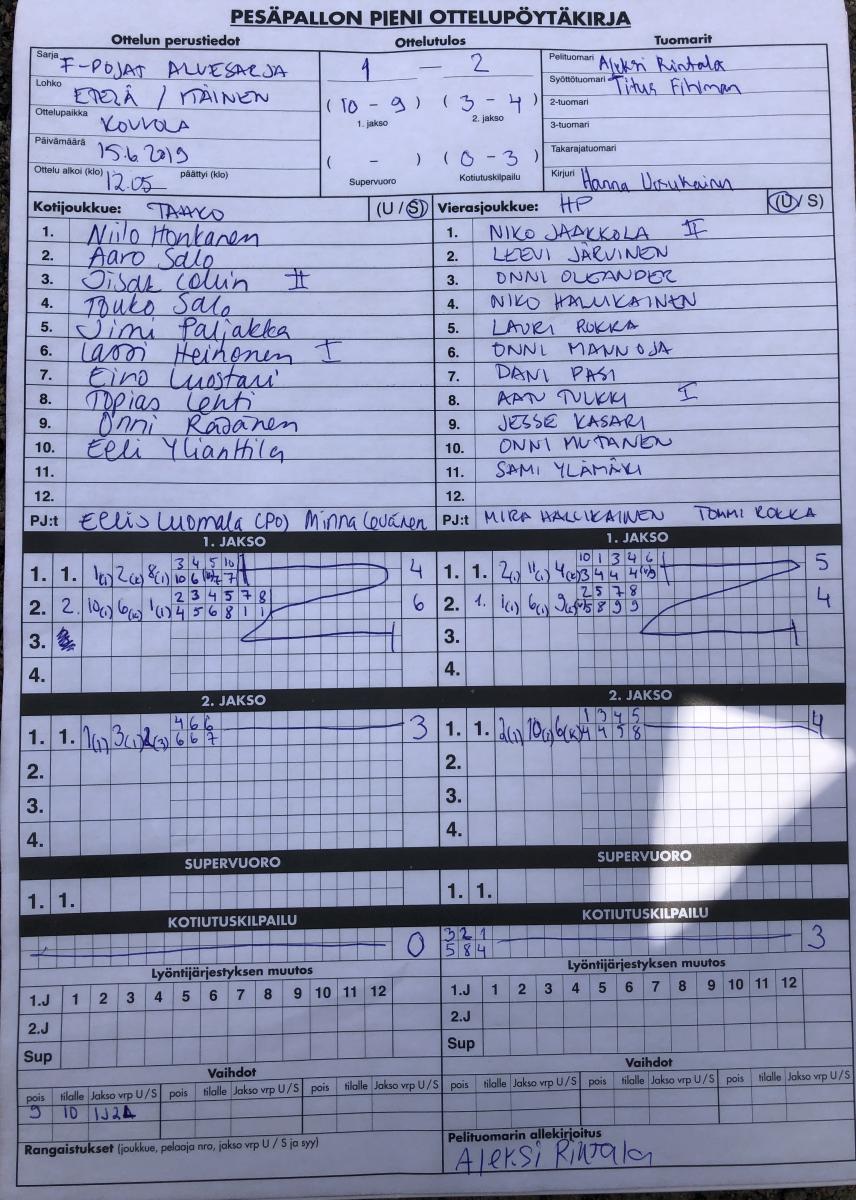 PESÄPALLON PIENI OTTELUPÖYTÄKIRJA
Ottelun perustiedot
Ottelutulos
Tuomarit
Sarja F-POJAT ALUESARJA
Lohko ETELÄ / ITÄINEN
Ottelupaikka KOUVOLA
Päivämäärä 15.6.2019
Ottelu alkoi (klo) 12.05 päättyi (klo)
1 - 2
( 10 - 9 ) ( 3 - 4 )
1. jakso 2. jakso
( - ) ( 0 - 3 )
Supervuoro Kotiutuskilpailu
Pelituomari Aleksi Rintala
Syöttötuomari Titus
2-tuomari
3-tuomari
Takarajatuomari
Kirjuri Hanna
Kotijoukkue: TAAKO (U / S)
1. Niilo Honkanen
2. Aaro Salo
3. Iisak Collin II
4. Touko Salo
5. Jimi Paljakka
6. Lassi Heinonen I
7. Eino Luostari
8. Topias Lehti
9. Onni Räsänen
10. Eeli Ylianttila
11.
12.
PJ:t Eelis Luomala (PO) Minna Levänen
Vierasjoukkue: HP (U / S)
1. NIKO JAAKKOLA II
2. LEEVI JÄRVINEN
3. ONNI OLEANDER
4. NIKO HALLIKAINEN
5. LAURI ROKKA
6. ONNI MANNOJA
7. DANI PASI
8. AATU TULKKI I
9. JESSE KASARI
10. ONNI MUTANEN
11. SAMI YLÄMÄKI
12.
PJ:t MIRA HALLIKAINEN TOMMI ROKKA
1. JAKSO
3 4 5 10
1. 1. 1(1) 2(K) 8(1) 10 6 7 4
2 3 4 5 7 8
2. 2. 10(1) 6(K) 1(1) 4 5 6 8 1 1 6
3.
4.
1. JAKSO
10 1 3 4 6
1. 1. 2(1) 11(1) 4(K) 3 4 4 4 5
2 5 7 8
2. 1. 1(1) 6(1) 5 8 9 9 4
3.
4.
2. JAKSO
4 6 6
1. 1. 1(1) 3(1) 6 6 7 3
2.
3.
4.
2. JAKSO
1 3 4 5
1. 1. 2(1) 10(1) 6(K) 4 4 5 8 4
2.
3.
4.
SUPERVUORO
1. 1.
SUPERVUORO
1. 1.
KOTIUTUSKILPAILU
0
KOTIUTUSKILPAILU
3 2 1
5 8 4 3
Lyöntijärjestyksen muutos
1.J 1 2 3 4 5 6 7 8 9 10 11 12
2.J
Sup
Lyöntijärjestyksen muutos
1.J 1 2 3 4 5 6 7 8 9 10 11 12
2.J
Sup
Vaihdot
pois tilalle Jakso vrp U / S pois tilalle Jakso vrp U / S pois tilalle Jakso vrp U / S
9 10
Vaihdot
pois tilalle Jakso vrp U / S pois tilalle Jakso vrp U / S pois tilalle Jakso vrp U / S
Rangaistukset (joukkue, pelaaja nro, jakso vrp U / S ja syy)
Pelituomarin allekirjoitus
Aleksi Rintala